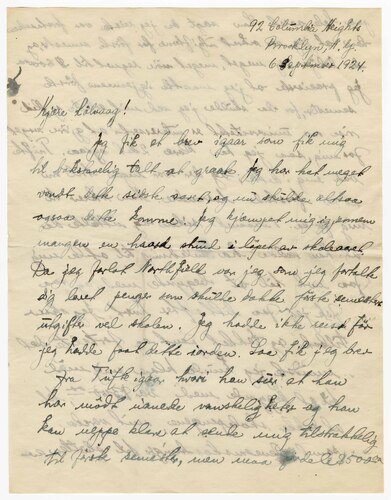 92 Columbia Heights
Brooklyn, N.Y.
6 September 1924.
Kjære Rølvaag!
Jeg fik et brev igaar som fik mig
til bokstavelig talt at graate. Jeg har hat meget
vondt dette siste aaret, og nu skulde altsaa
ogsaa dette komme. Jeg kjæmpet mig igjennem
mangen en haard stund i løpet av skoleaaret.
Da jeg forlot Northfield var jeg, som jeg fortalte
dig lovet penger som skulde dække første semesters
utgifter ved skolen. Jeg hadde ikke reist før
jeg hadde faat dette iorden. Saa fik jeg brev
fra igaar, hvori han sier at han
har mødt uanede vanskeligheter og han
kan neppe klare at sende mig tilstrækkelig
til første semester, men maa